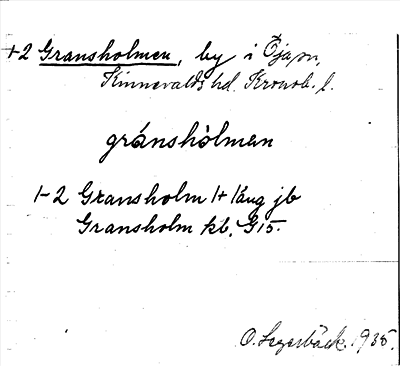 +2 Gransholmen, by i Öja sn,
Kinnevalds hd. Kronob. l.
gránshòlmen
1-2 Gransholm 1+ läng jb
Gransholm kb. G15.
O. Segerbäck. 1935.